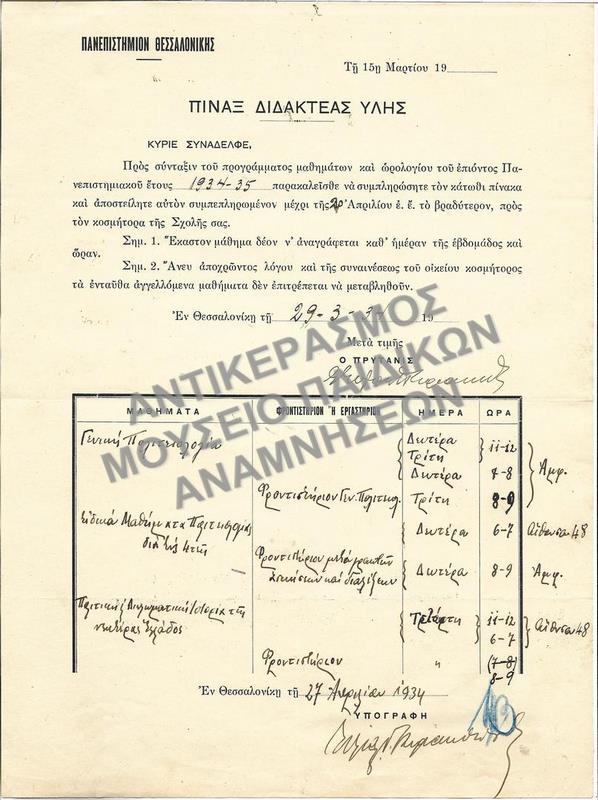 ΠΑΝΕΠΙΣΤΗΜΙΟΝ ΘΕΣΣΑΛΟΝΙΚΗΣ
Τῇ 15ῃ Μαρτίου 19
ΠΙΝΑΞ ΔΙΔΑΚΤΕΑΣ ΥΛΗΣ
ΚΥΡΙΕ ΣΥΝΑΔΕΛΦΕ,
Πρὸς σύνταξιν τοῦ προγράμματος μαθημάτων καὶ ὡρολογίου τοῦ ἐπιόντος Πα-
νεπιστημιακοῦ ἔτους 1934-35 παρακαλεῖσθε νὰ συμπληρώσητε τὸν κάτωθι πίνακα
καὶ ἀποστείλητε αὐτὸν συμπεπληρωμένον μέχρι τῆς Ἀπριλίου ἐ. ἔ. τὸ βραδύτερον, πρὸς
τὸν κοσμήτορα τῆς Σχολῆς σας.
Σημ. 1. Ἕκαστον μάθημα δέον ν' ἀναγράφεται καθ' ἡμέραν τῆς ἑβδομάδος καὶ
ὥραν.
Σημ. 2. Ἄνευ ἀποχρῶντος λόγου καὶ τῆς συναινέσεως τοῦ οἰκείου κοσμήτορος
τὰ ἐνταῦθα ἀγγελλόμενα μαθήματα δὲν ἐπιτρέπεται νὰ μεταβληθοῦν.
Ἐν Θεσσαλονίκῃ τῇ 29-3-34 19
Μετὰ τιμῆς
Ο ΠΡΥΤΑΝΙΣ
ΑΝΤΙΚΕΡΑΣΜΟΣ
ΜΟΥΣΕΙΟ ΠΑΙΔΙΚΩΝ
ΑΝΑΜΝΗΣΕΩΝ
ΜΑΘΗΜΑΤΑ ΦΡΟΝΤΙΣΤΗΡΙΟΝ Ἢ ΕΡΓΑΣΤΗΡΙΟΝ ΗΜΕΡΑ ΩΡΑ
Γενικὴ Πολιτειολογία Δευτέρα 11-12
Τρίτη
Δευτέρα 7-8 Ἀμφ.
Φροντιστήριον Γεν. Πολιτειολ. Τρίτη 8-9
Εἰδικὰ Μαθήματα Πολιτειολογίας Δευτέρα 6-7 Αἴθουσα 48
διὰ 4ετεῖς
Φροντιστήριον μετὰ γραπτῶν
ἀσκήσεων καὶ διαλέξεων Δευτέρα 8-9 Ἀμφ.
Πολιτικὴ Διπλωματικὴ Ἱστορία τῆς Τετάρτη 11-12 Αἴθουσα 48
νεωτέρας Ἑλλάδος 6-7
Φροντιστήριον " (7-8)
8-9
Ἐν Θεσσαλονίκῃ τῇ 27 Ἀπριλίου 1934
ΥΠΟΓΡΑΦΗ